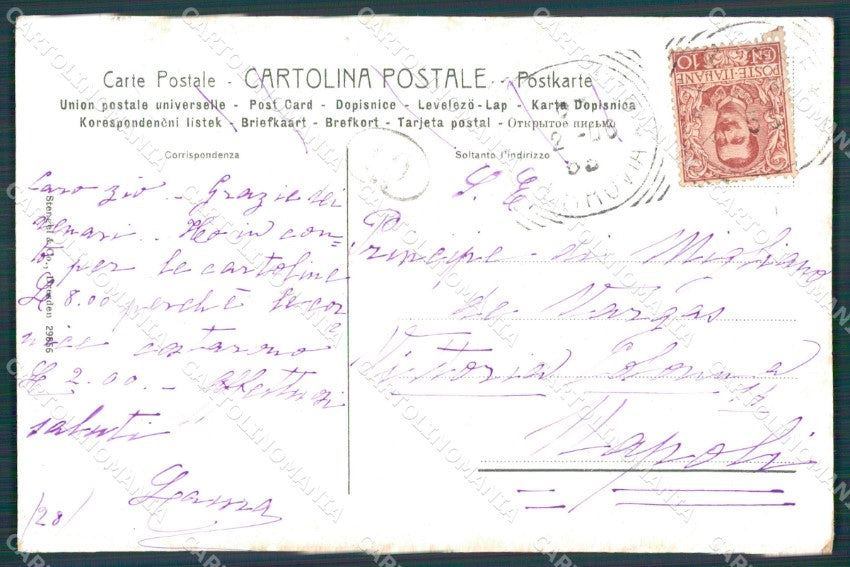 Carte Postale - CARTOLINA POSTALE - Postkarte
Union postale universelle - Post Card - Dopisnice - Levelező-Lap - Karta Dopisnica
Korespondenční listek - Briefkaart - Brefkort - Tarjeta postal - Открытое письмо
Corrispondenza
Soltanto l'indirizzo
Caro zio - Grazie dei
denari. Ho in con=
to per le cartoline
£ 8.00 perchè le cor
nice costarono
£ 2.00. - Affettuosi
saluti
Laura
/28/
Stengel & Co., Dresden 29856
S. E.
Principe di Migliano
de Vargas
Vittoria Colonna
Napoli
POSTE ITALIANE
CEN. 10
CARTOLINOMANIA